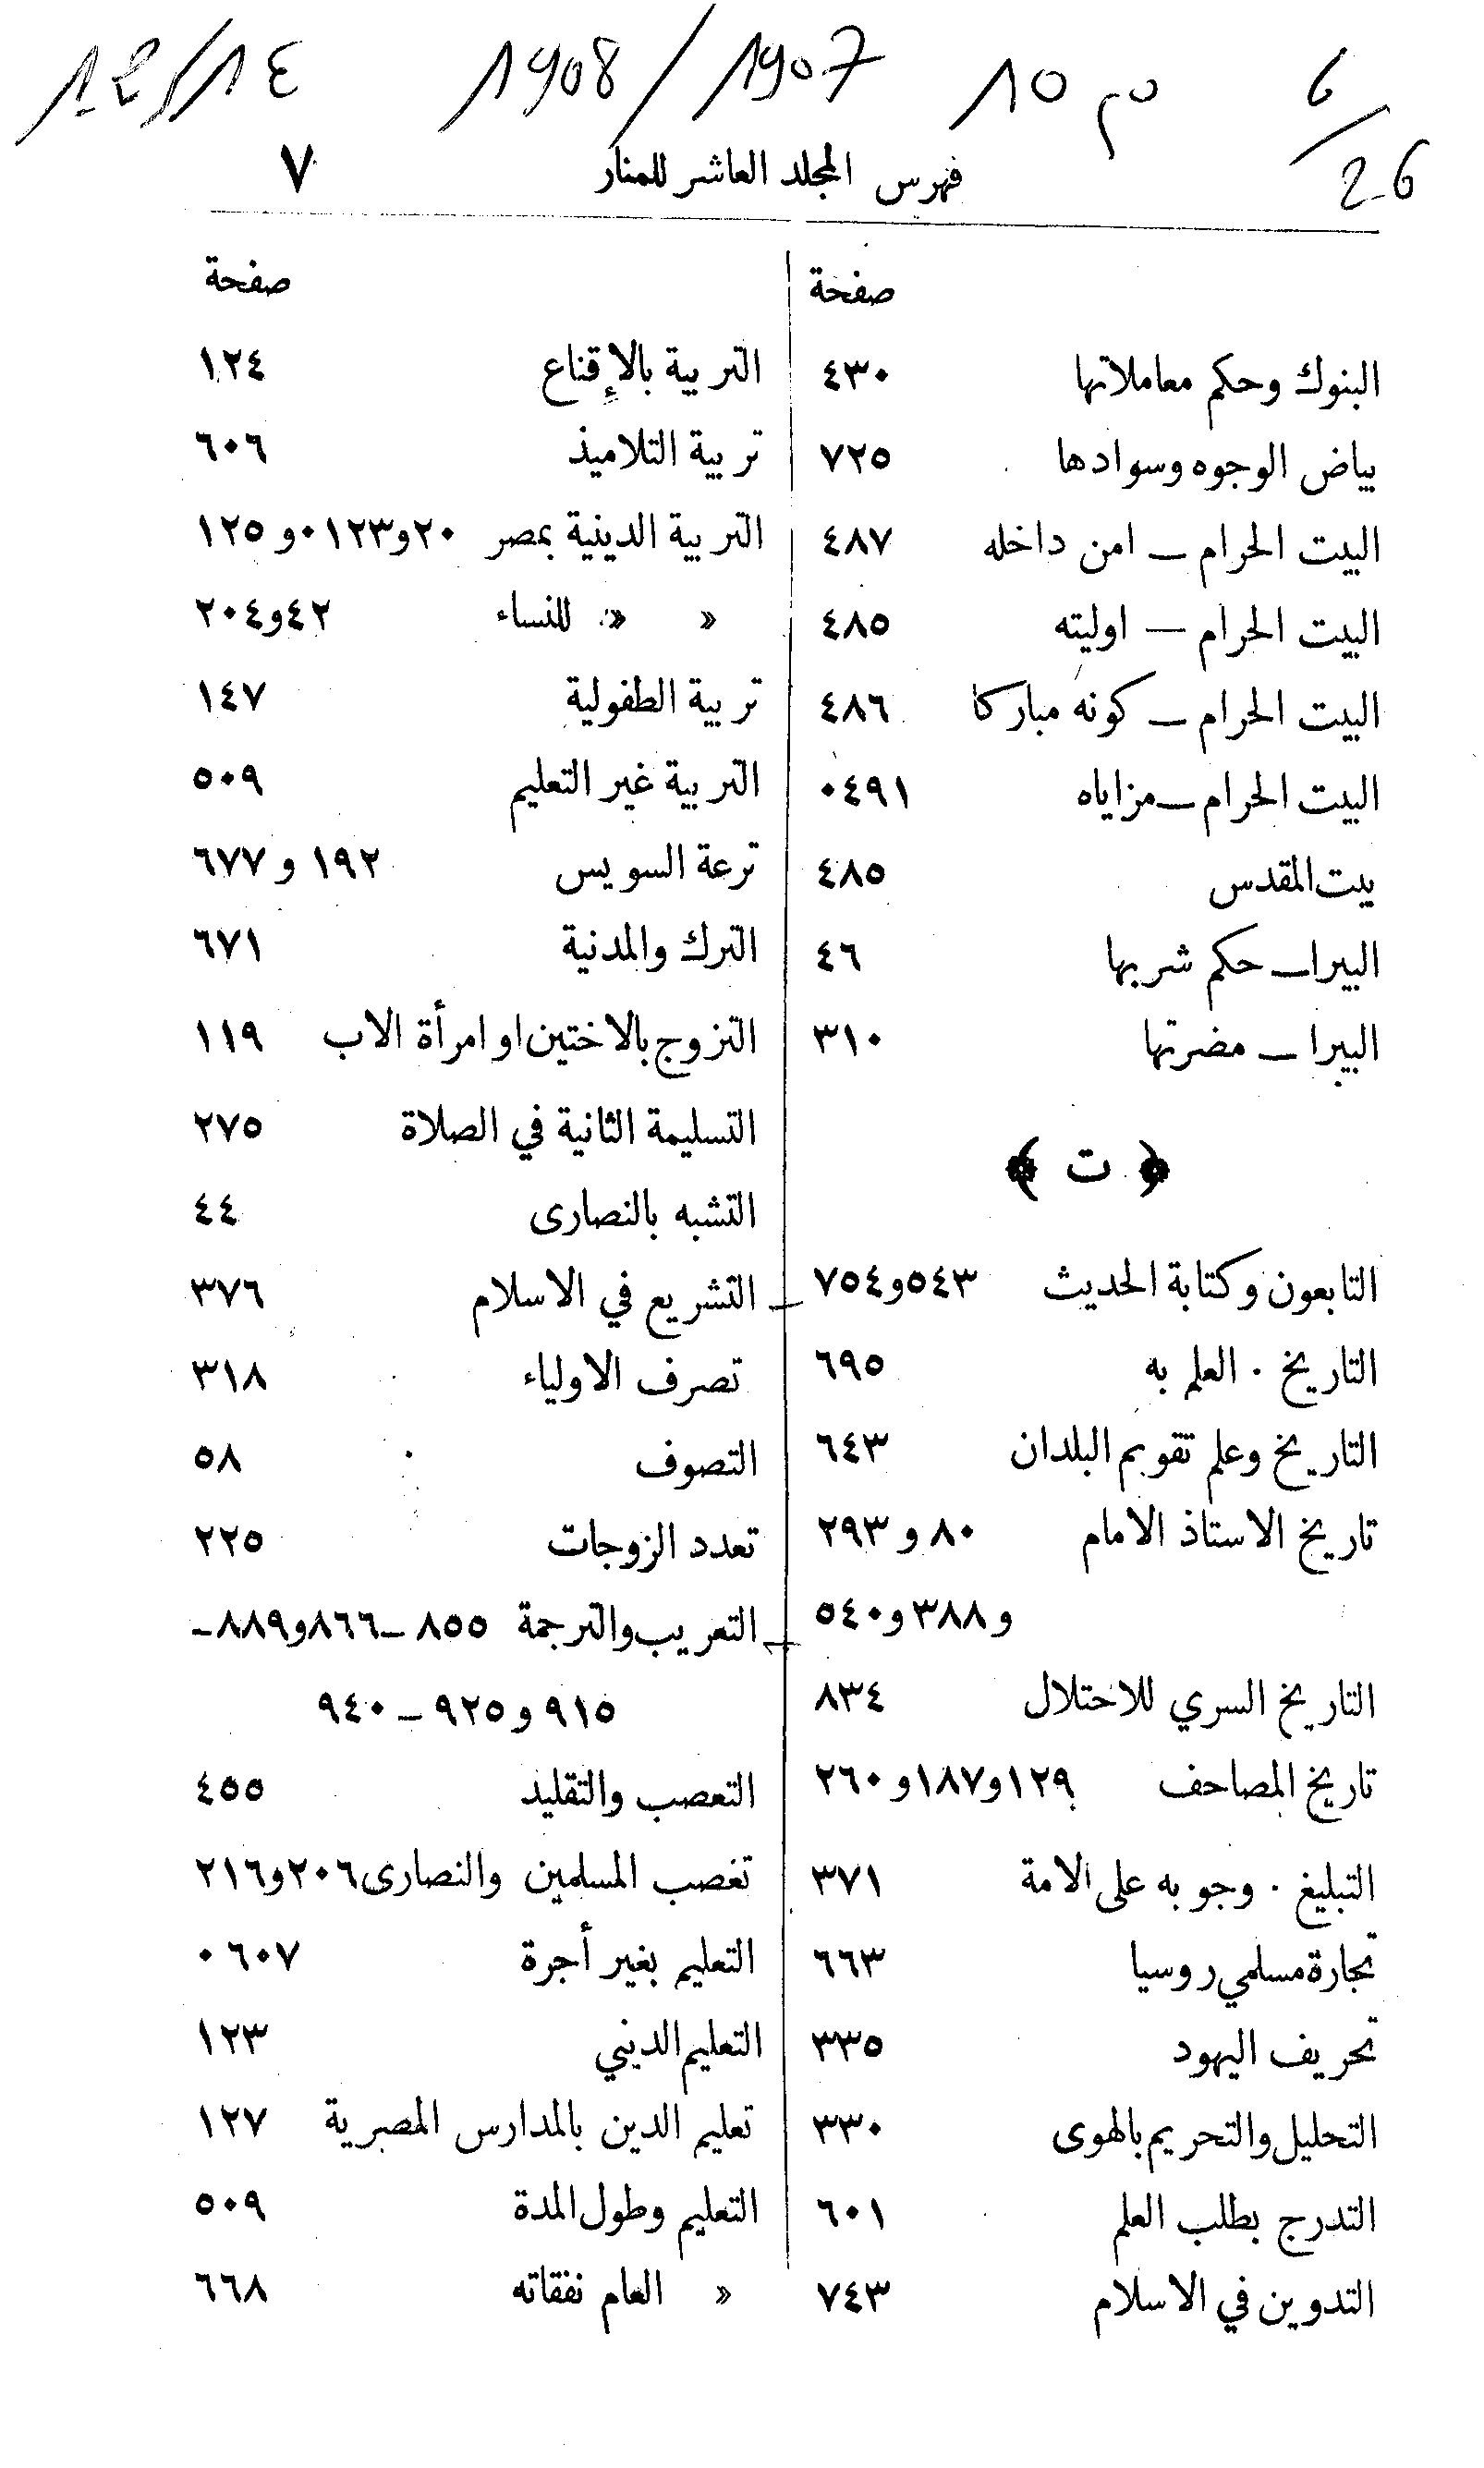 6/26 م 10 1907/1908
فهرس المجلد العاشر للمنار ٧
صفحة
البنوك وحكم معاملاتها ٤٣٠
بياض الوجوه وسوادها ٧٢٥
البيت الحرام – امن داخله ٤٨٧
البيت الحرام – اوليته ٤٨٥
البيت الحرام – كونه مباركا ٤٨٦
البيت الحرام – مزاياه ٠٤٩١
بيت المقدس ٤٨٥
البيرا – حكم شربها ٤٦
البيرا – مضرتها ٣١٠
﴿ ت ﴾
التابعون وكتابة الحديث ٥٤٣ و٧٥٤
التاريخ . العلم به ٦٩٥
التاريخ وعلم تقويم البلدان ٦٤٣
تاريخ الاستاذ الامام ٨٠ و ٢٩٣
و ٣٨٨ و ٥٤٠
التاريخ السري للاحتلال ٨٣٤
تاريخ المصاحف ١٢٩ و١٨٧ و ٢٦٠
التبليغ . وجوبه على الامة ٣٧١
تجارة مسلمي روسيا ٦٦٣
تحريف اليهود ٣٣٥
التحليل والتحريم بالهوى ٣٣٠
التدرج بطلب العلم ٦٠١
التدوين في الاسلام ٧٤٣
صفحة
التربية بالإقناع ١٢٤
تربية التلاميذ ٦٠٦
التربية الدينية بمصر ٢٠ و١٢٣٠ و ١٢٥
« « للنساء ٤٢ و٢٠٤
تربية الطفولية ١٤٧
التربية غير التعليم ٥٠٩
ترعة السويس ١٩٢ و ٦٧٧
الترك والمدنية ٦٧١
التزوج بالاختين او امرأة الاب ١١٩
التسليمة الثانية في الصلاة ٢٧٥
التشبه بالنصارى ٤٤
التشريع في الاسلام ٣٧٦
تصرف الاولياء ٣١٨
التصوف ٥٨
تعدد الزوجات ٢٢٥
التعريب والترجمة ٨٥٥ – ٨٦٦ و٨٨٩ –
٩١٥ و ٩٢٥ – ٩٤٠
التعصب والتقليد ٤٥٥
تغصب المسلمين والنصارى ٢٠٦ و٢١٦
التعليم بغير أجرة ٦٠٧ ٠
التعليم الديني ١٢٣
تعليم الدين بالمدارس المصرية ١٢٧
التعليم وطول المدة ٥٠٩
« العام نفقاته ٦٦٨